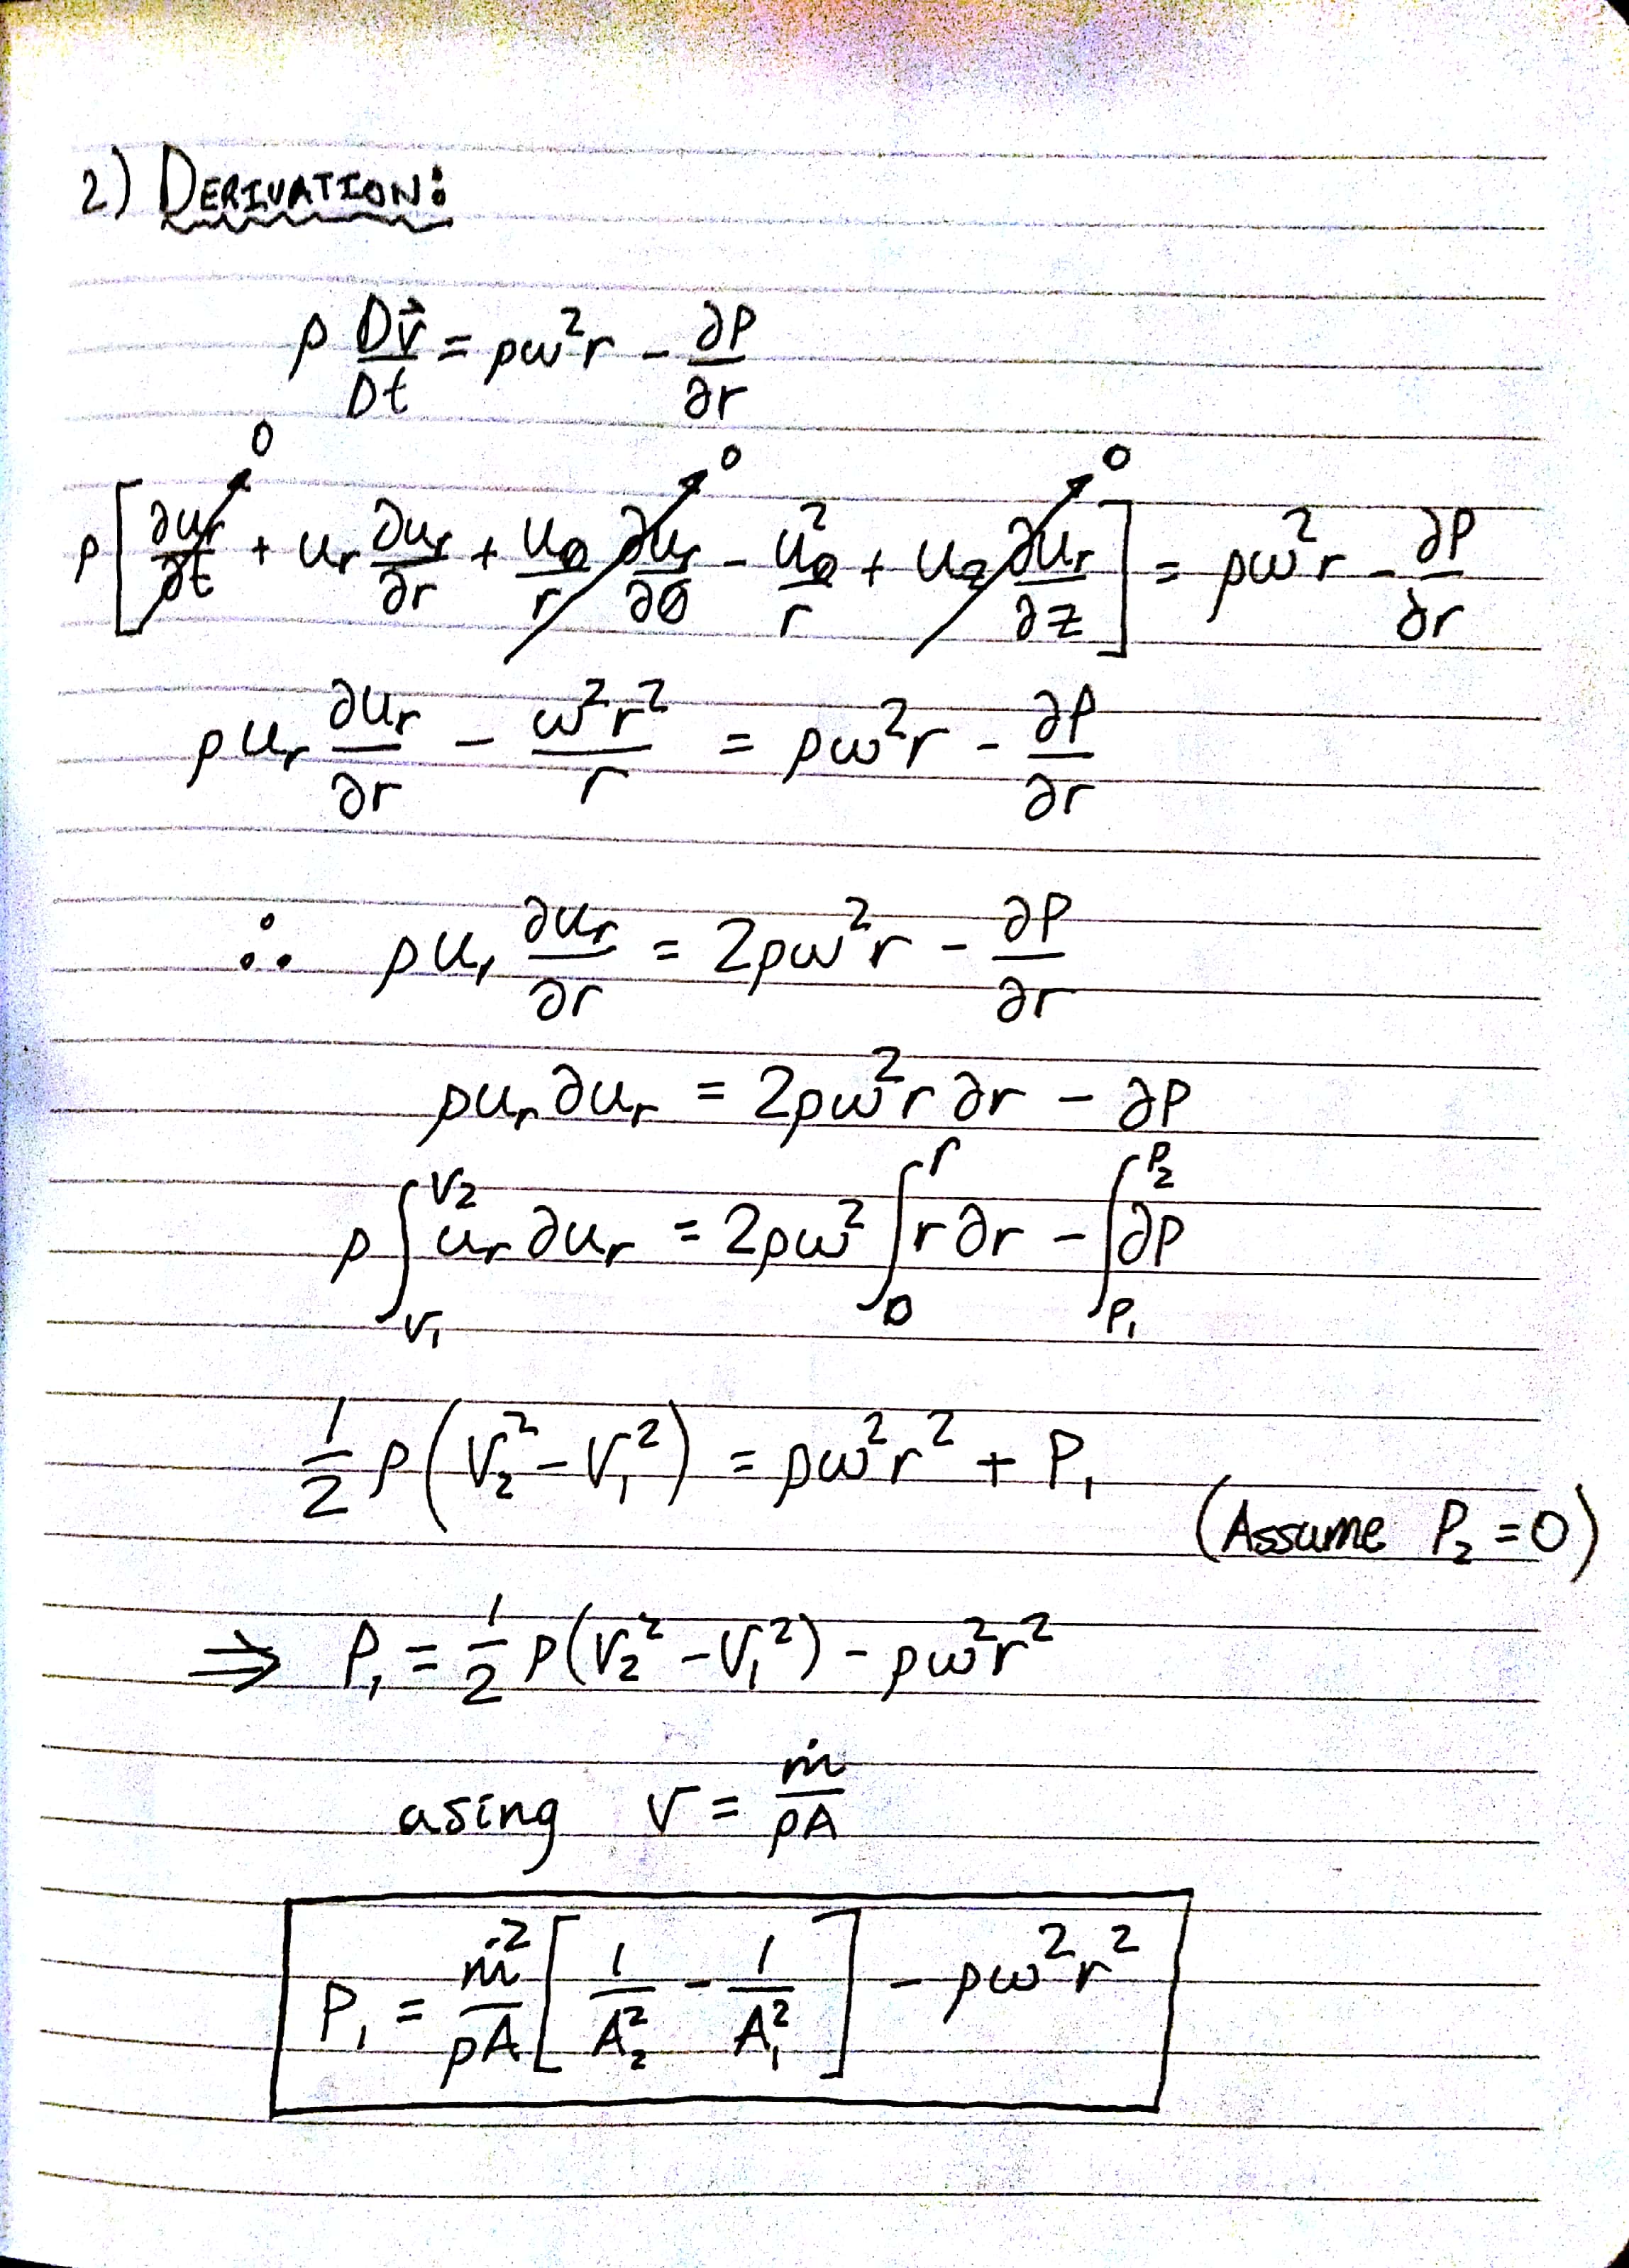 2) DERIVATION:
ρ Dv⃗/Dt = ρω²r - ∂P/∂r
ρ[∂uᵣ/∂t + uᵣ ∂uᵣ/∂r + u_θ/r ∂uᵣ/∂θ - u_θ²/r + u_z ∂uᵣ/∂z] = ρω²r - ∂P/∂r
0 0 0
ρuᵣ ∂uᵣ/∂r - ω²r²/r = ρω²r - ∂P/∂r
∴ ρuᵣ ∂uᵣ/∂r = 2ρω²r - ∂P/∂r
ρuᵣ∂uᵣ = 2ρω²r∂r - ∂P
ρ∫_{V₁}^{V₂} uᵣ∂uᵣ = 2ρω² ∫_0^r r∂r - ∫_{P₁}^{P₂} ∂P
1/2 ρ(V₂² - V₁²) = ρω²r² + P₁
(Assume P₂ = 0)
⇒ P₁ = 1/2 ρ(V₂² - V₁²) - ρω²r²
using V = ṁ/ρA
P₁ = ṁ²/ρA [1/A₂² - 1/A₁²] - ρω²r²